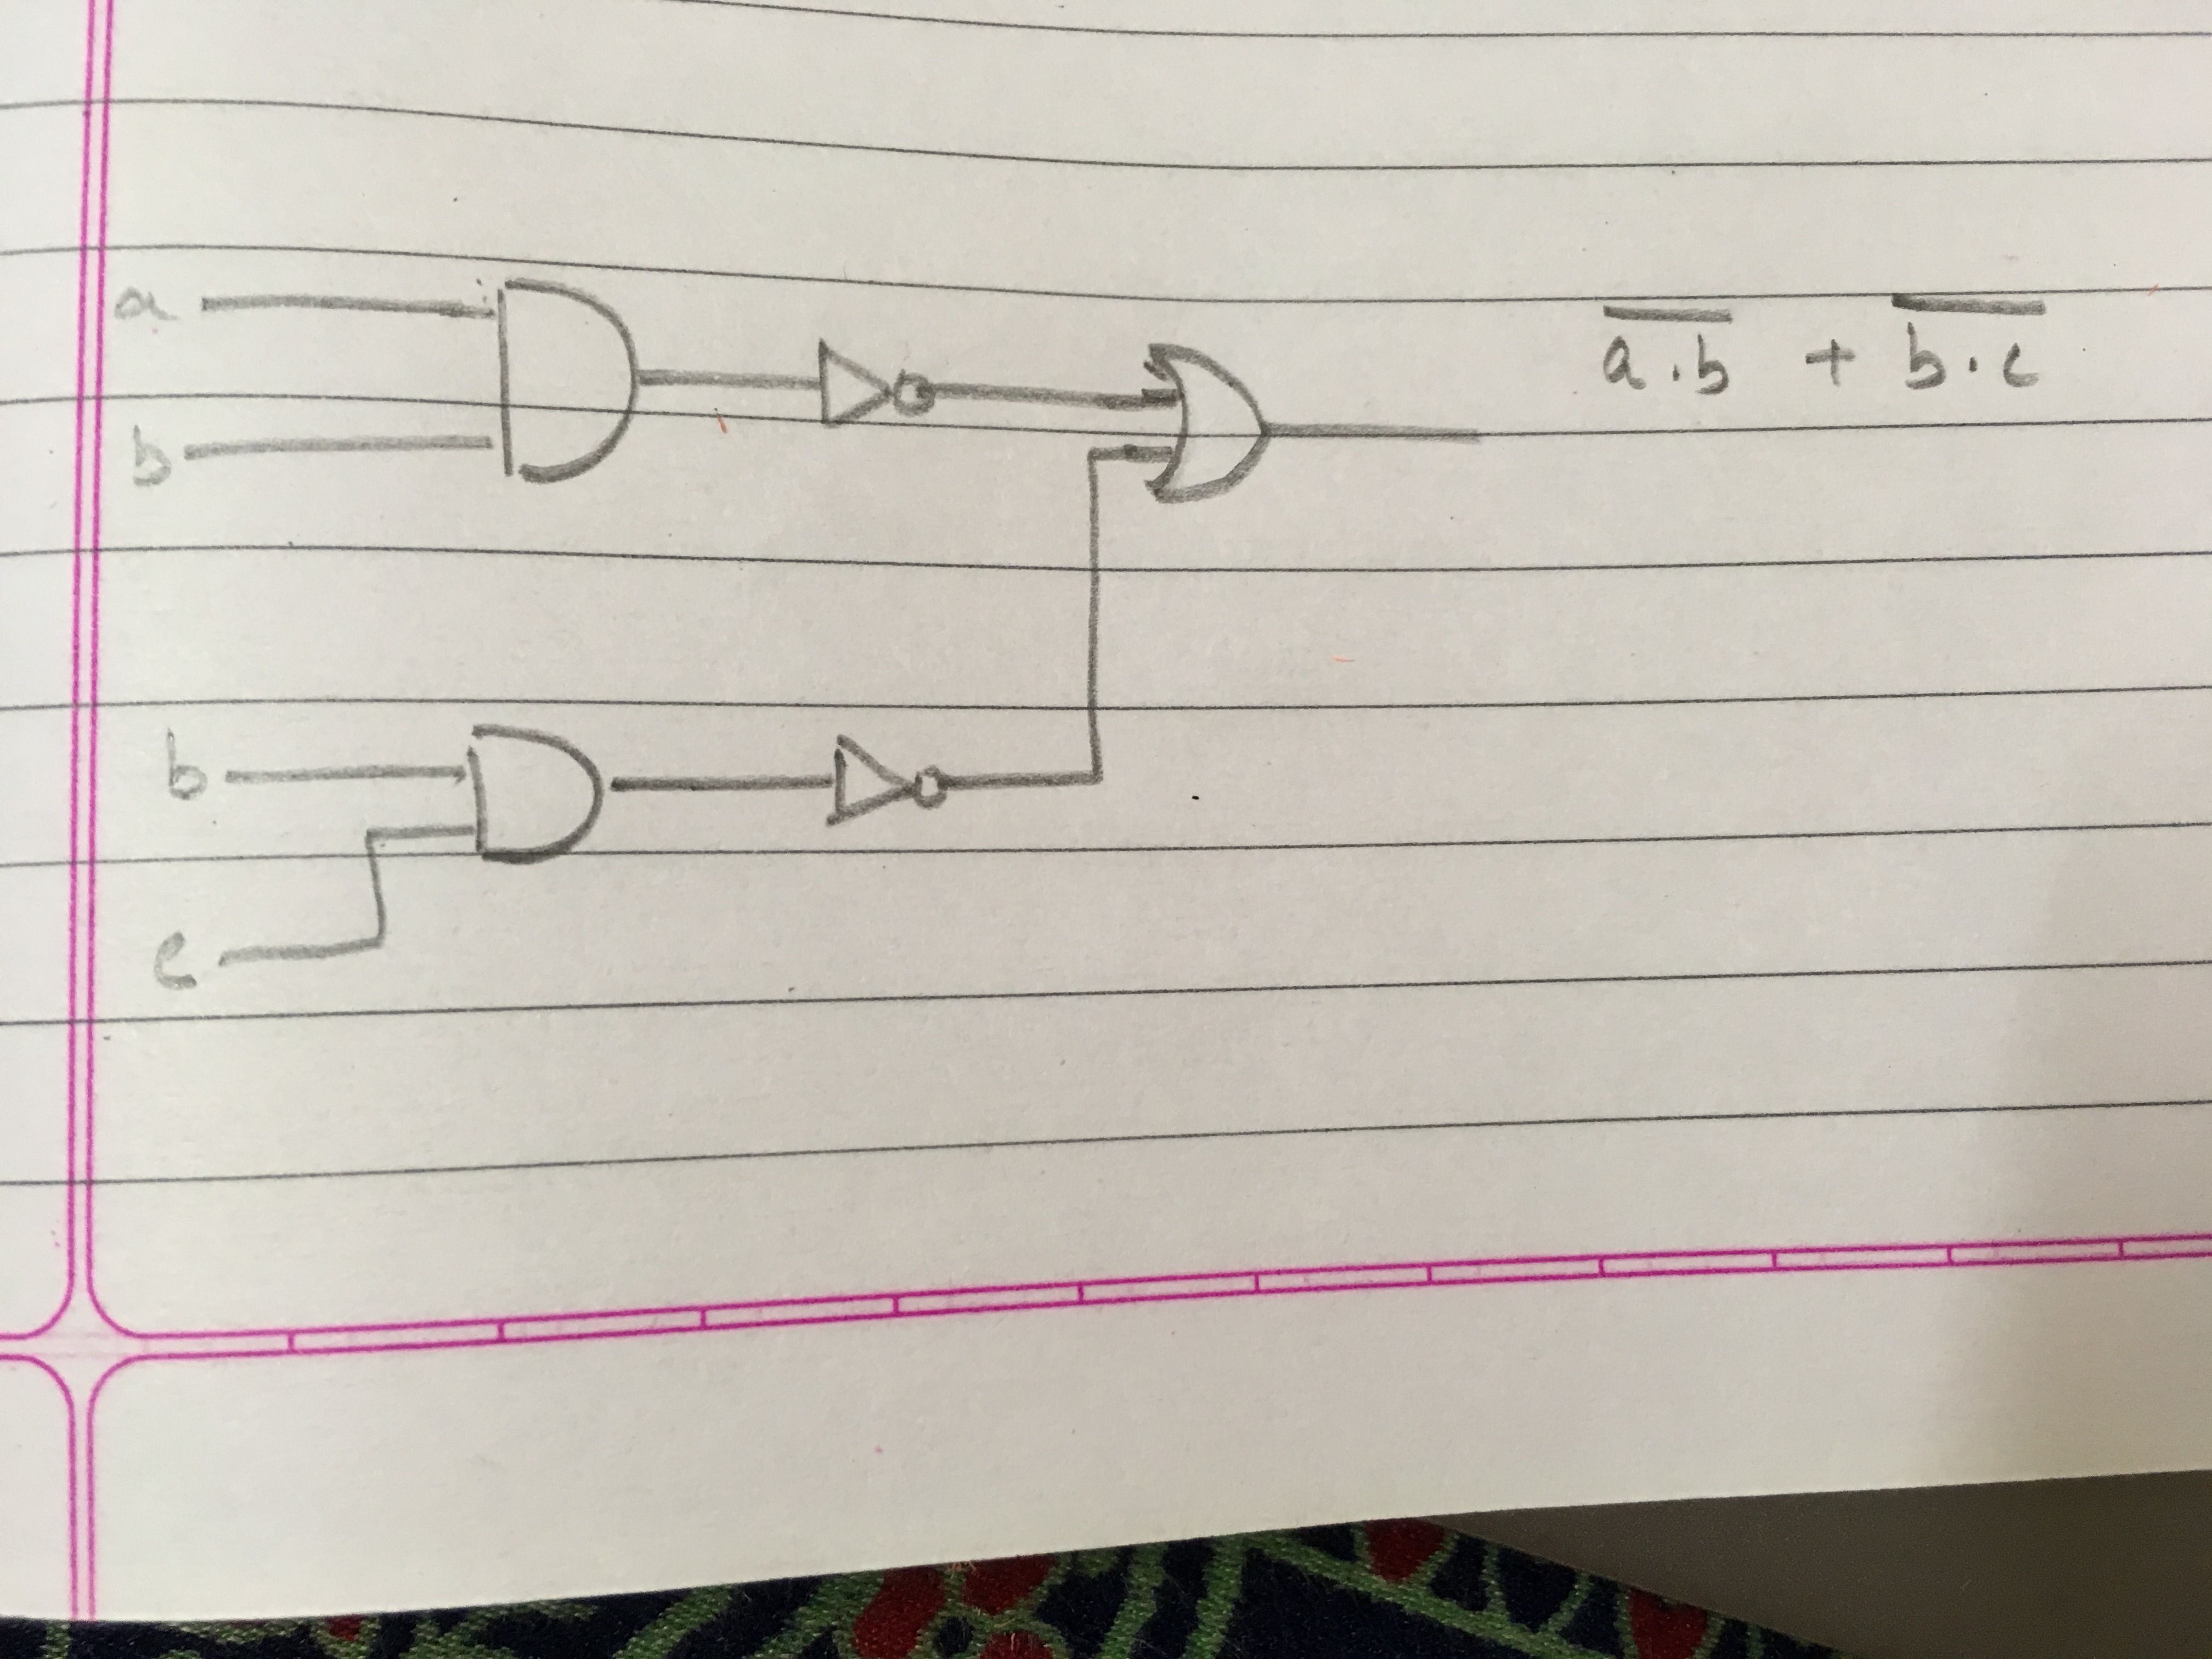 a
b
b
c
a̅.̅b̅ + b̅.̅c̅